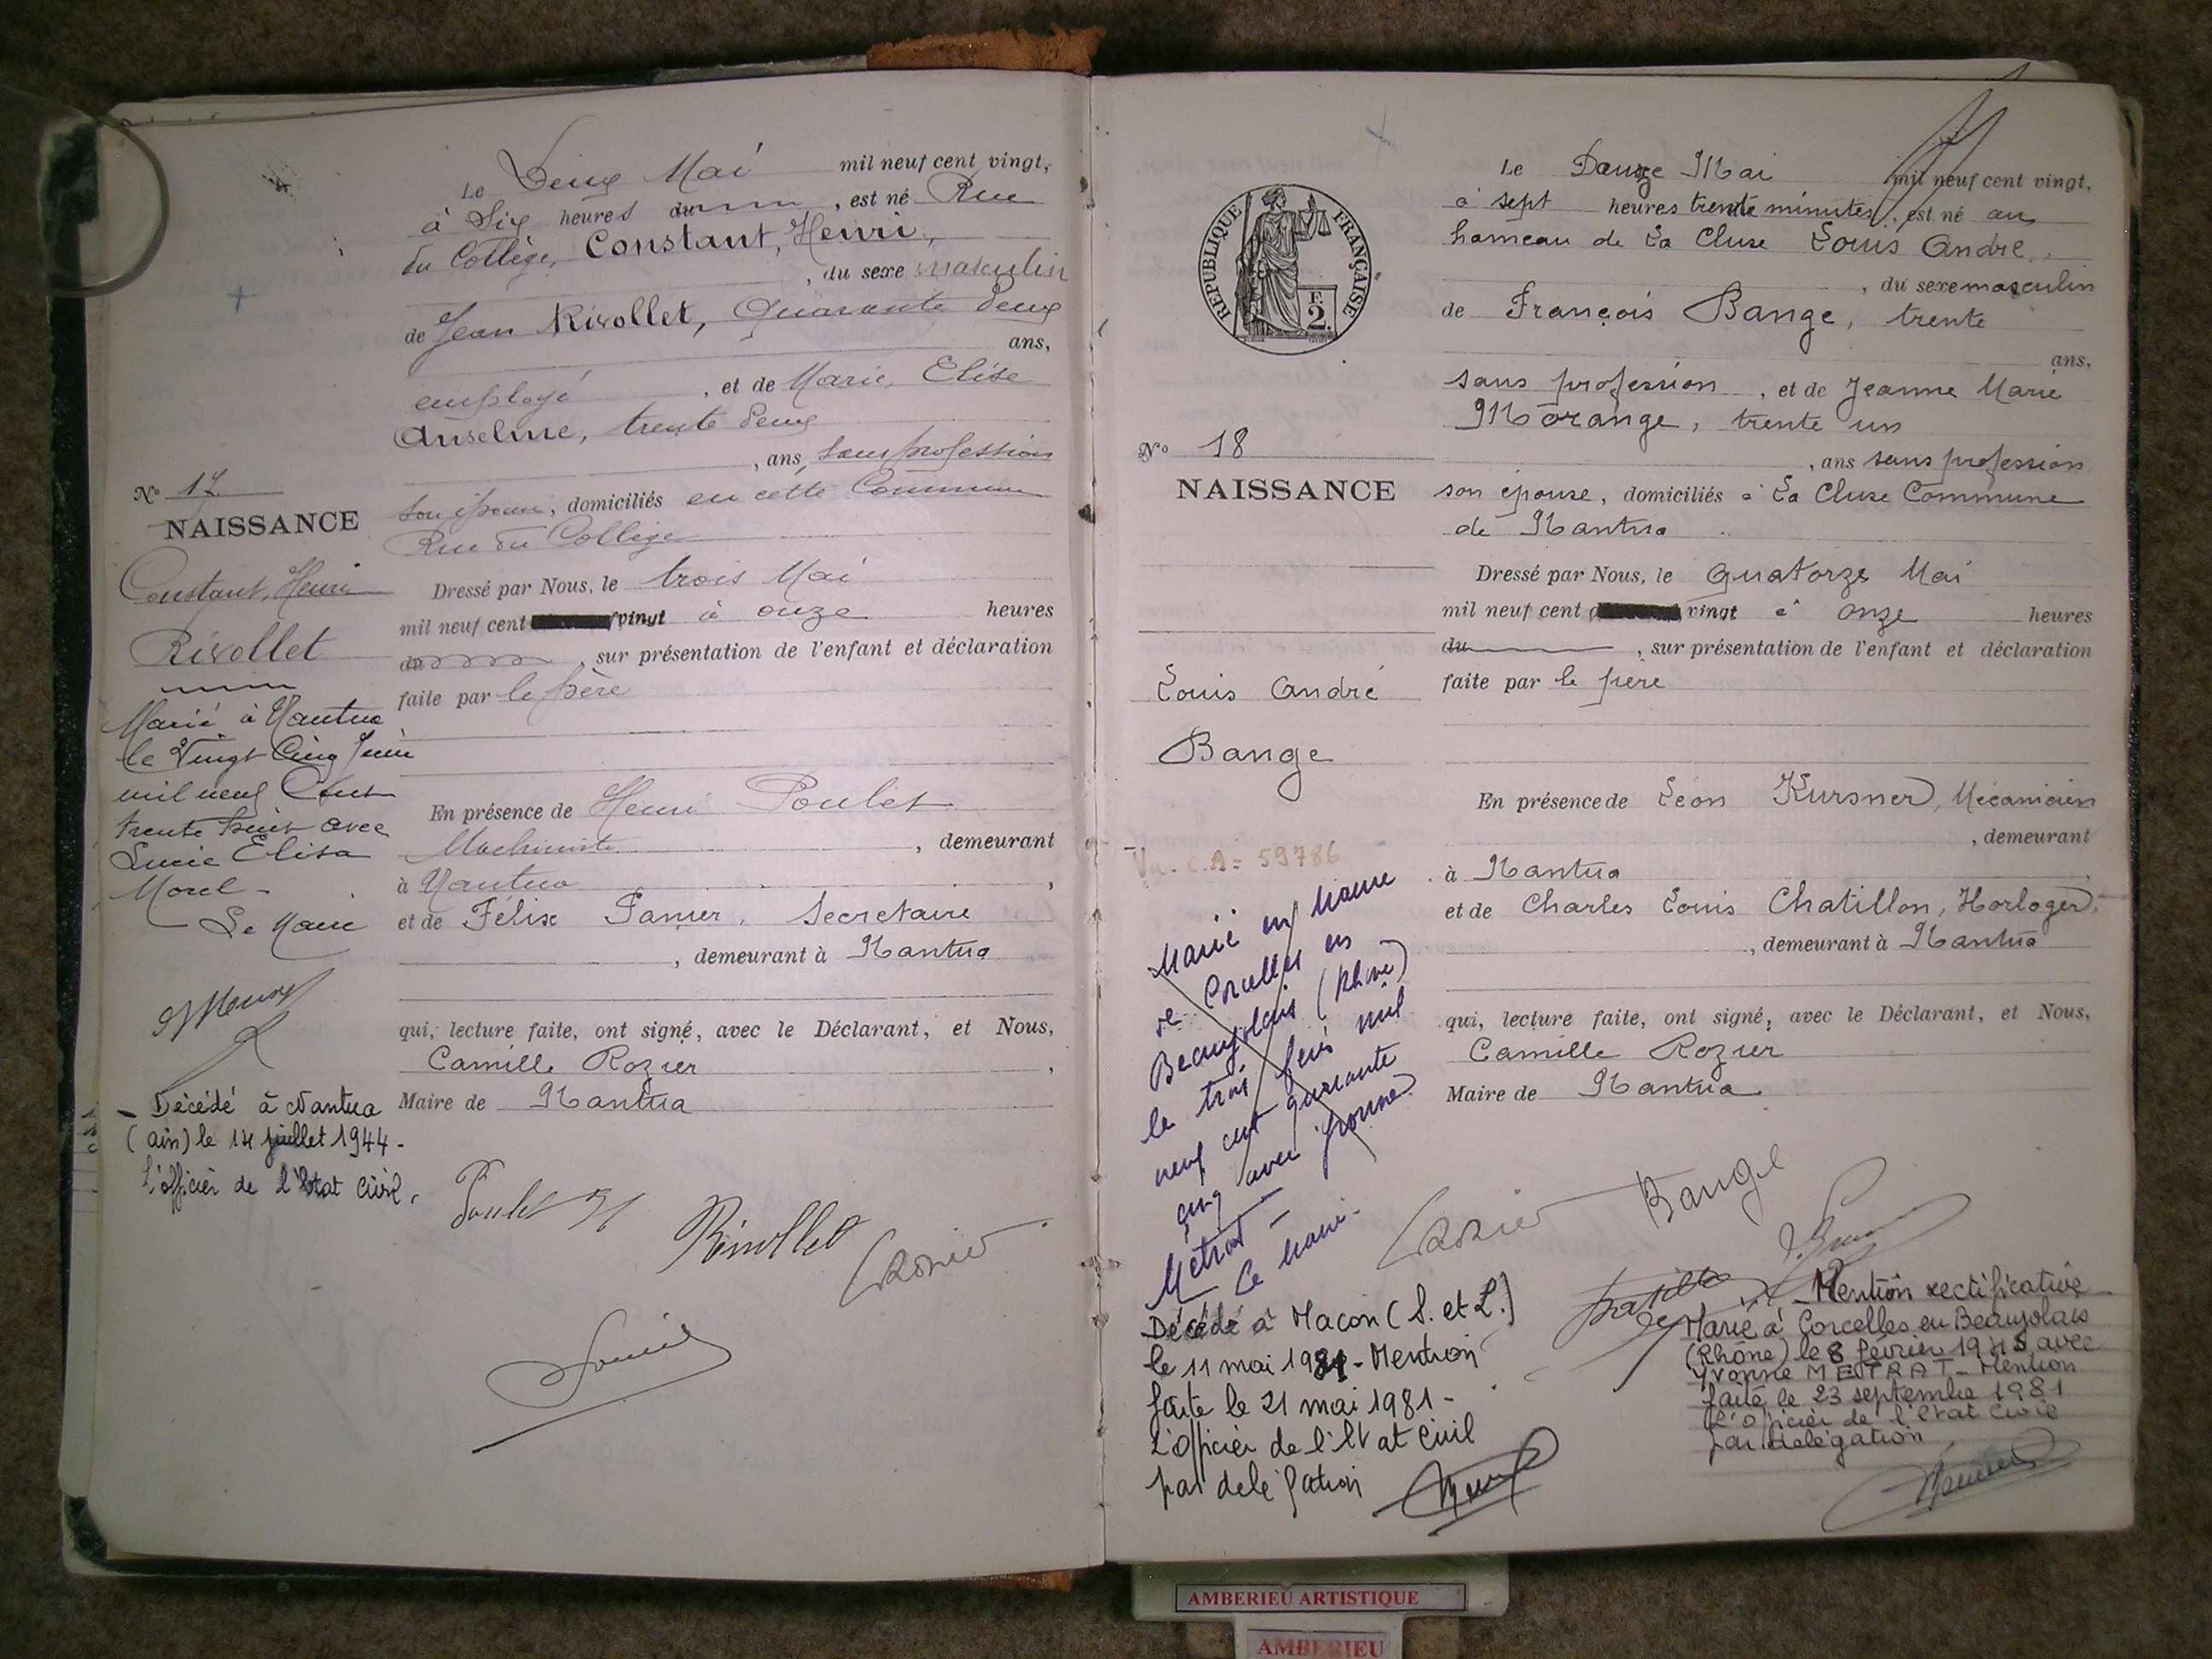 Le Deux Mai mil neuf cent vingt,
à Six heures du, est né Rue
du Collège, Constant, Henri,
, du sexe masculin
de Jean Rivollet, Quarante deux
ans,
employé, et de Marie, Elise
Anselme, trente deux
, ans, sans profession
son épouse, domiciliés en cette Commune
Rue du Collège
Dressé par Nous, le trois Mai
mil neuf cent vingt à onze heures
du, sur présentation de l'enfant et déclaration
faite par le père
En présence de Henri Poulet
Machiniste, demeurant
à Nantua,
et de Félix Panier, Secretaire
, demeurant à Nantua
qui, lecture faite, ont signé, avec le Déclarant, et Nous,
Camille Rozier,
Maire de Nantua
Poulet H Rivollet
CRozier
No 17
NAISSANCE
Constant, Henri
Rivollet
Marié à Nantua
le Vingt Cinq Juin
mil neuf Cent
trente huit avec
Lucie Elisa
Morel -
Le Maire
- Décédé à Nantua
(ain) le 14 juillet 1944 -
L'officier de l'Etat Civil.
RÉPUBLIQUE FRANÇAISE
F.
2.
No 18
NAISSANCE
Louis André
Bange
Vu. C.A = 59786
Marié en Mairie
de Corcelles en
Beaujolais (Rhône)
le trois février mil
neuf cent quarante
cinq avec Yvonne
Métrat -
Le Maire.
Décédé à Macon (S. et L.)
le 11 mai 1981 - Mention
faite le 21 mai 1981 -
L'Officier de l'Etat Civil
par delegation
Le Douze Mai mil neuf cent vingt,
à sept heures trente minutes, est né au
hameau de La Cluse Louis André,
, du sexe masculin
de François Bange, trente
ans,
sans profession, et de Jeanne Marie
Morange, trente un
, ans sans profession
son épouse, domiciliés à La Cluse Commune
de Nantua
Dressé par Nous, le Quatorze Mai
mil neuf cent vingt à onze heures
du, sur présentation de l'enfant et déclaration
faite par le père
En présence de Léon Kursner, Mécanicien
, demeurant
à Nantua
et de Charles Louis Chatillon, Horloger,
, demeurant à Nantua
qui, lecture faite, ont signé, avec le Déclarant, et Nous,
Camille Rozier
Maire de Nantua
CRozier Bange
- Mention rectificative
Marié à Corcelles en Beaujolais
(Rhône) le 8 février 1945 avec
Yvonne METRAT - Mention
faite le 23 septembre 1981
L'Officier de l'Etat Civil
par délégation
AMBERIEU ARTISTIQUE
AMBERIEU